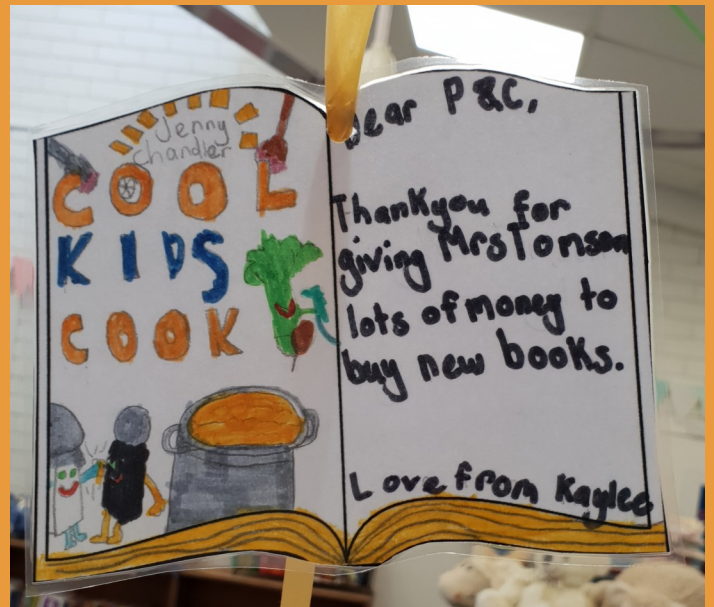 Jenny
Chandler
COOL
KIDS
COOK
Dear P&C,
Thankyou for
giving Mrs Tonson
lots of money to
buy new books.
Love from Kaylee